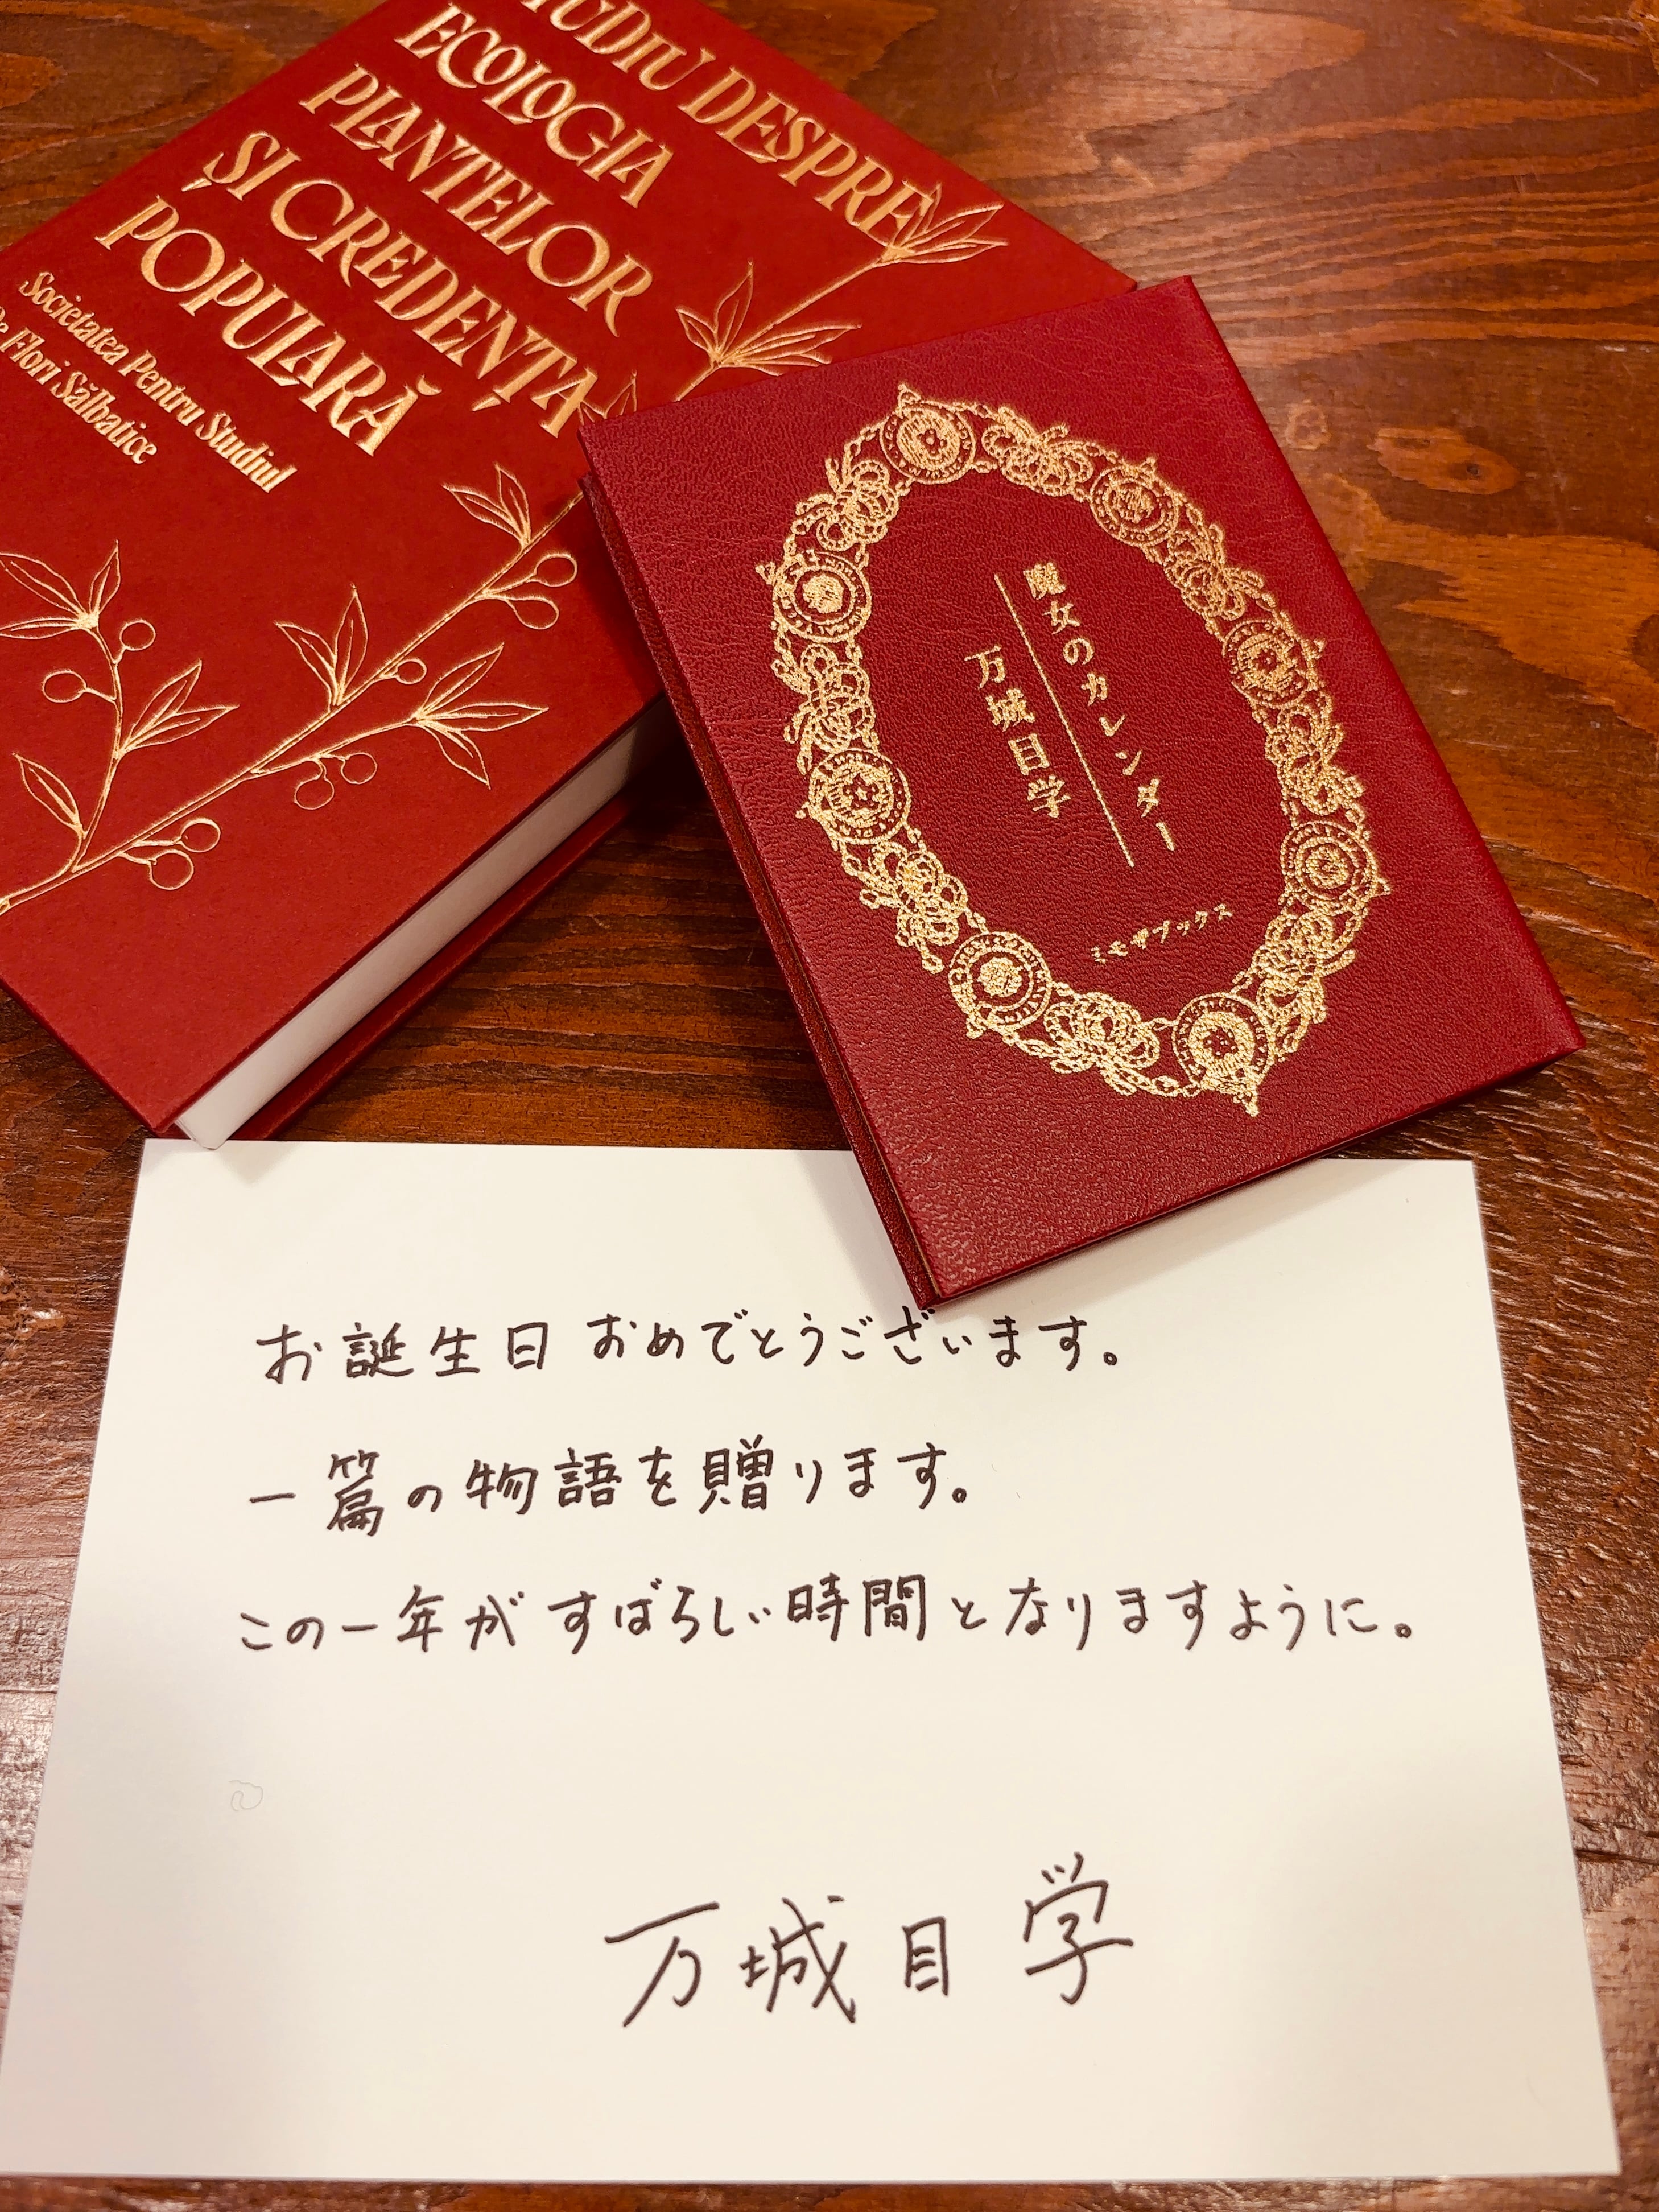 ECOLOGIA
PLANTELOR
ȘI CREDENȚA
POPULARĂ
DESPRE
Societatea Pentru Studiul
De Flori Sălbatice
魔女のカレンダー
万城目学
ミモザブックス
お誕生日 おめでとうございます。
一篇の物語を贈ります。
この一年が すばらしい時間となりますように。
万城目学